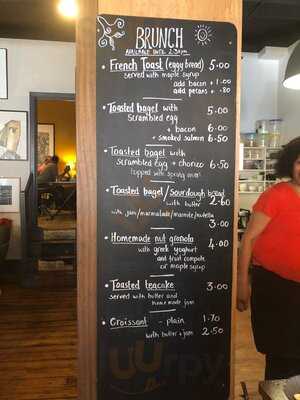 BRUNCH
AVAILABLE UNTIL 2:30pm
• French Toast (eggy bread) 5.00
served with maple syrup
add bacon + 1.00
add pecans + .80
• Toasted bagel with 5.00
scrambled egg
+ bacon 6.00
+ smoked salmon 6.50
• Toasted bagel with
scrambled egg + chorizo 6.50
(topped with spring onion)
• Toasted bagel/sourdough bread
with butter 2.60
with jam/marmalade/marmite/nutella
3.00
• Homemade nut granola 4.00
with greek yoghurt
and fruit compote
or maple syrup
• Toasted teacake 3.00
served with butter and
homemade jam
• Croissant - plain 1.70
with butter + jam 2.50